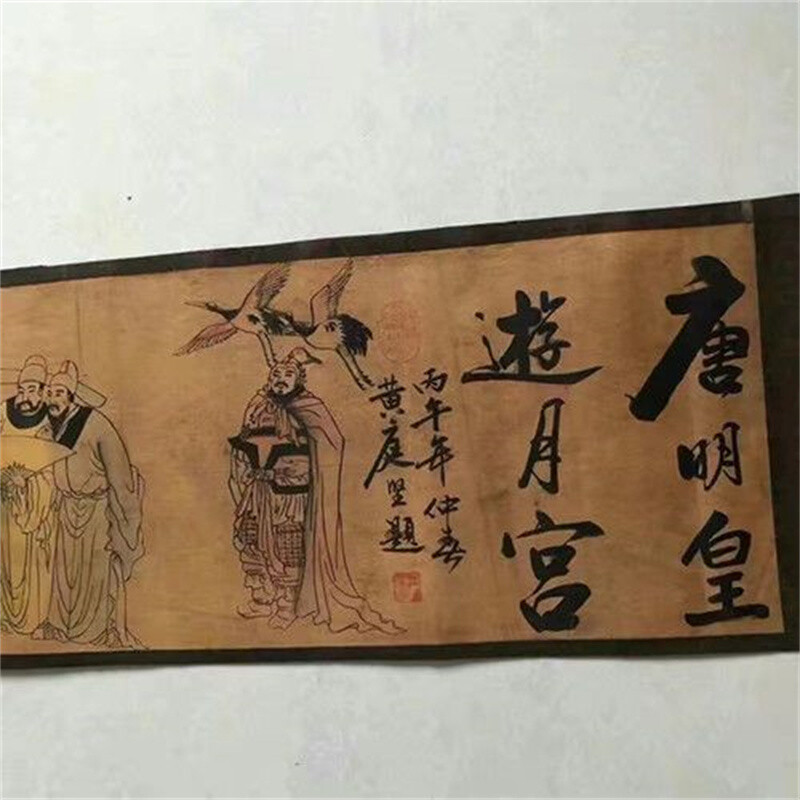 唐明皇
遊月宮
丙午年仲春
黄庭坚题